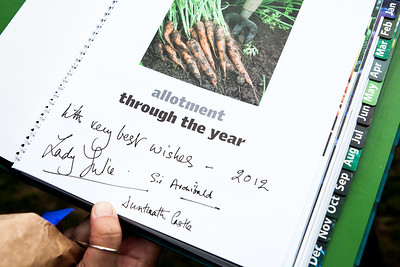 allotment
through the year
With very best wishes – 2012
Lady Julie. Sir Archibald
Duntreath Castle
Jan
Feb
Mar
Apr
May
Jun
Jul
Aug
Sep
Oct
Nov
Dec